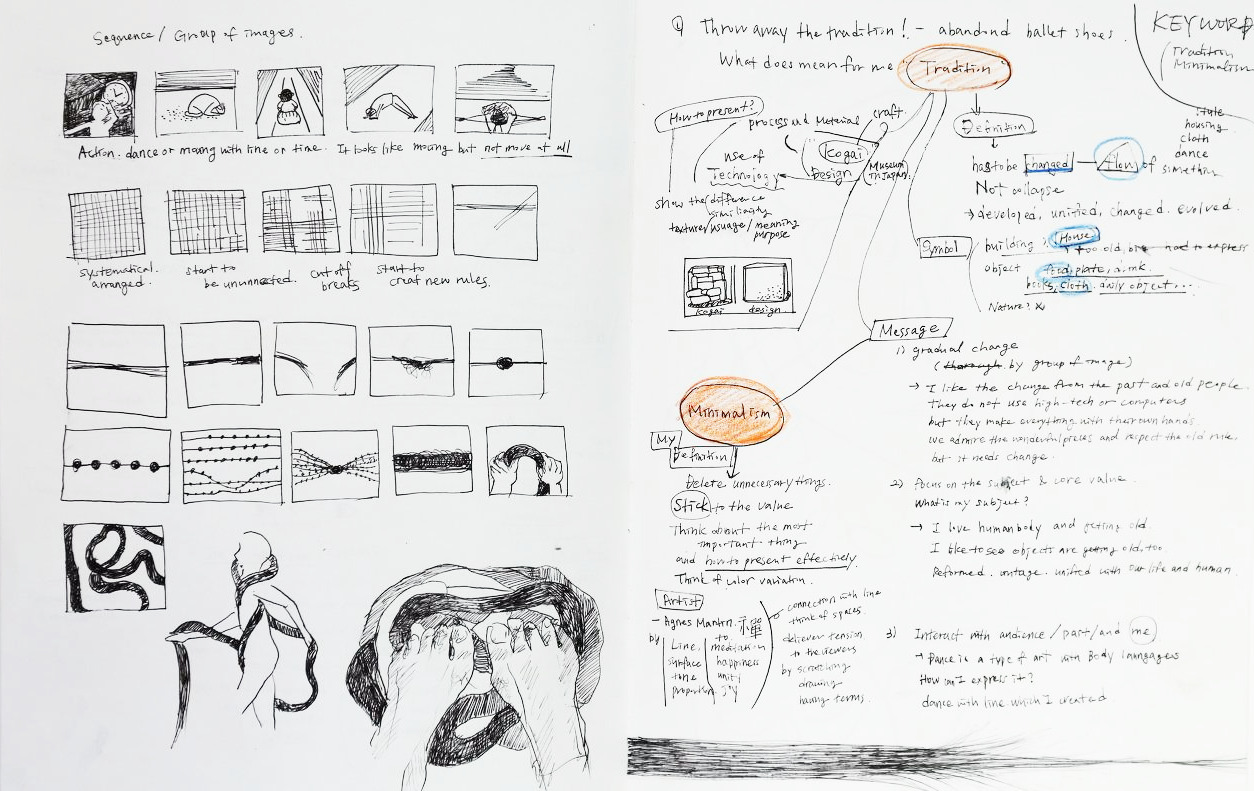 Sequence / Group of images.
Action. dance or moving with line or time. It looks like moving but not move at all
systematical.
arranged.
start to
be ununnected.
cut off
breaks
start to
creat new rules.
Q Throw away the tradition! - abandond ballet shoes.
What does mean for me "Tradition"
KEYWORD
Tradition
Minimalism
How to present?
process and Material
craft.
Kogai
Design
Museum
in Japan.
use of
Technology
show the difference
similiarity
texture/usuage/meaning
purpose
kogai
design
Definition
has to be changed — flow of
something
housing
cloth
dance
Not collapse
→ developed, unified, changed. evolved.
Symbol
building? House
too old, had to express
object food, plate,
books, cloth. daily object...
Nature? x
Message
1) gradual change
(thorough by group of image)
→ I like the change from the past and old people.
They do not use high-tech or computers
but they make everything with their own hands
we admire the wonderful pieces and respect the old rule.
but it needs change.
2) Focus on the subject & core value.
What is my subject?
→ I love human body and getting old.
I like to see objects are getting old, too
Reformed. vintage. unified with our life and human.
3) Interact with audience / past / and me
→ Dance is a type of art with Body languages
How can I express it?
dance with line which I created
Minimalism
My
Definition
Delete unnecessary things.
Stick to the value
Think about the most
important thing
and how to present effectively.
Think of color variation.
Artist
- Agnes Martin. 禪
by
Line,
surface
tone
proportion
to
meditation
happiness
unity
joy
connection with line
think of spaces.
deliever tension
to the viewers
by scratching
drawing
having terms.